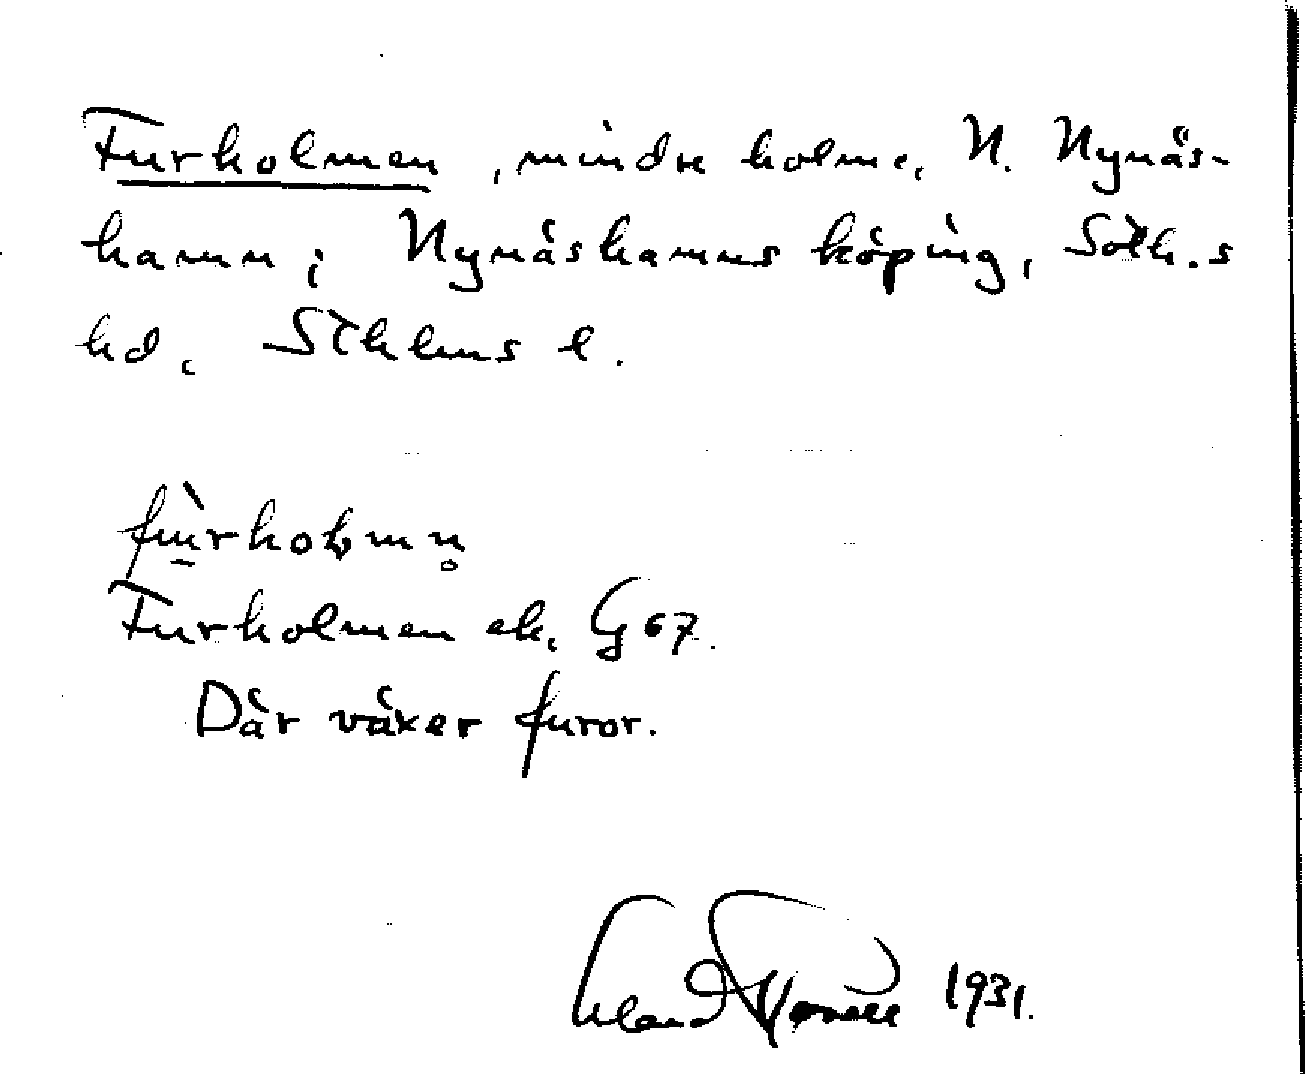 Furholmen, mindre holme, N. Nynäs-
hamn; Nynäshamns köping, Soth.s
hd, Sthlms l.
Furholmen ek. G 67.
Där växer furor.
1931.